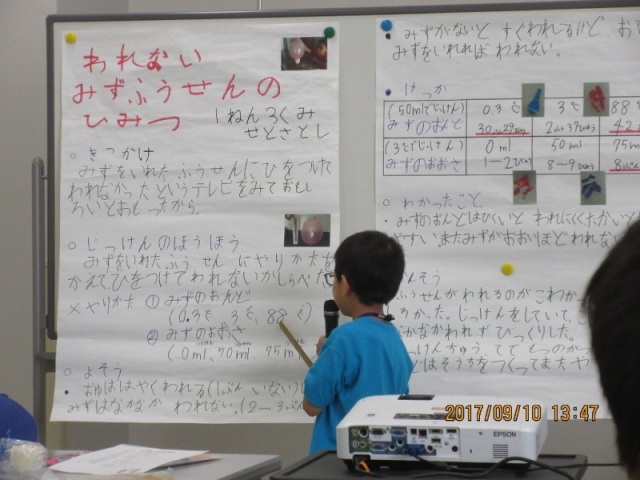 われない
みずふうせんの
ひみつ
1ねん3くみ
せとさとし
○きっかけ
みずをいれたふうせんにひをつけた
われなかったというテレビをみておもし
ろいとおもったから。
○じっけんのほうほう
みずをいれたふうせんにやりかたを
かえてひをつけてわれないかしらべた
×やりかた ①みずのおんど
(0.3℃ 3℃ 88℃)
②みずのおおさ
(0ml、50ml、75ml
○よそう
おゆははやくわれる(1ぷんいない)
みずはなかなかわれない。(2―3ぷん
みずがないとすぐわれるけど、
みずをいれればわれない。
○けっか
(50mlでじっけん)
みずのおんど
0.3℃ 3℃ 88
30 2ふん37びょう 42
(3℃でじっけん)
みずのおおさ
0ml 50ml 75m
1～2びょう 8～9びょう
○わかったこと
・みずのおんどはひくいとわれにくくたかいと
やすい またみずがおおいほどわれない
んそう
ふうせんがわれるのがこわか
ろかった。じっけんをしていて、
なかなかわれずびっくりした。
っけんちゅう
どはそうちをつくってまたや
EPSON
2017/09/10 13:47